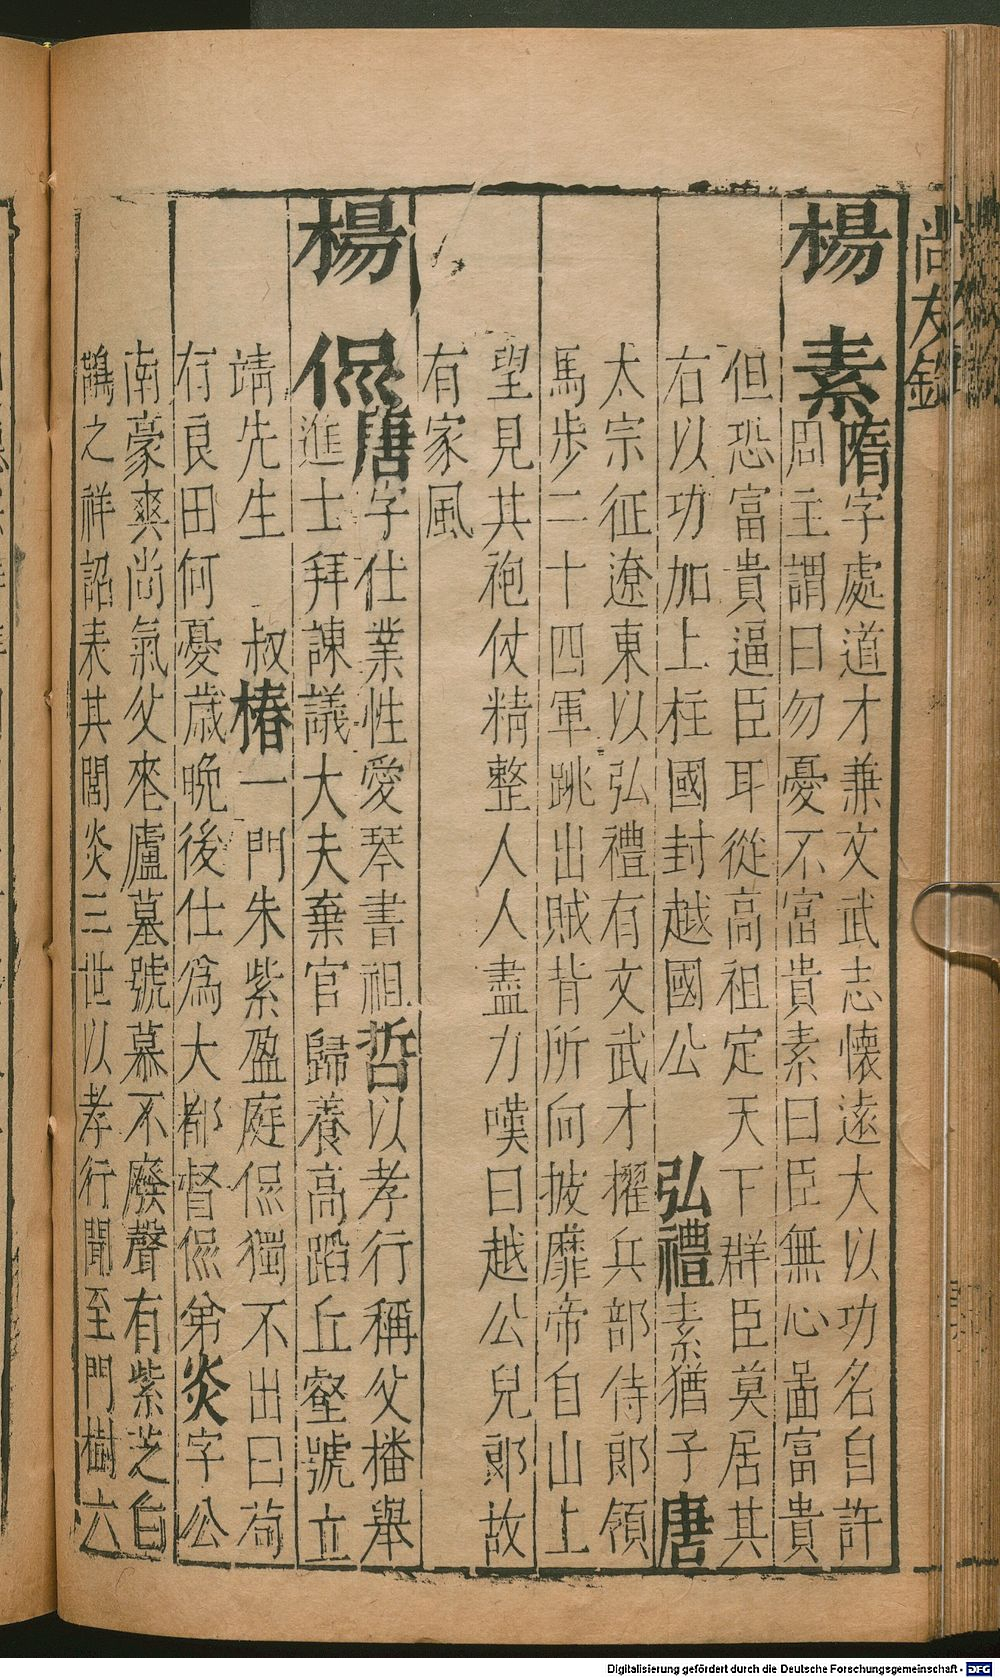 尚友錄
楊素隋字處道才兼文武志懷遠大以功名自許
周主謂曰勿憂不富貴素曰臣無心啚富貴
但恐富貴逼臣耳從高祖定天下群臣莫居其
右以功加上柱國封越國公 弘禮素猶子唐
太宗征遼東以弘禮有文武才擢兵部侍郎領
馬步二十四軍跳出賊背所向披靡帝自山上
望見其袍仗精整人人盡力嘆曰越公兒郎故
有家風
楊侭唐字仕業性愛琴書祖哲以孝行稱父播舉
進士拜諫議大夫棄官歸養高蹈丘壑號立
靖先生 叔椿一門朱紫盈庭侭獨不出曰苟
有良田何憂歲晚後仕爲大都督侭弟炎字公
南豪爽尚氣父䘮廬墓號慕不廢聲有紫芝白
鵲之祥詔表其閭炎三世以孝行聞至門樹六
Digitalisierung gefördert durch die Deutsche Forschungsgemeinschaft - DFG